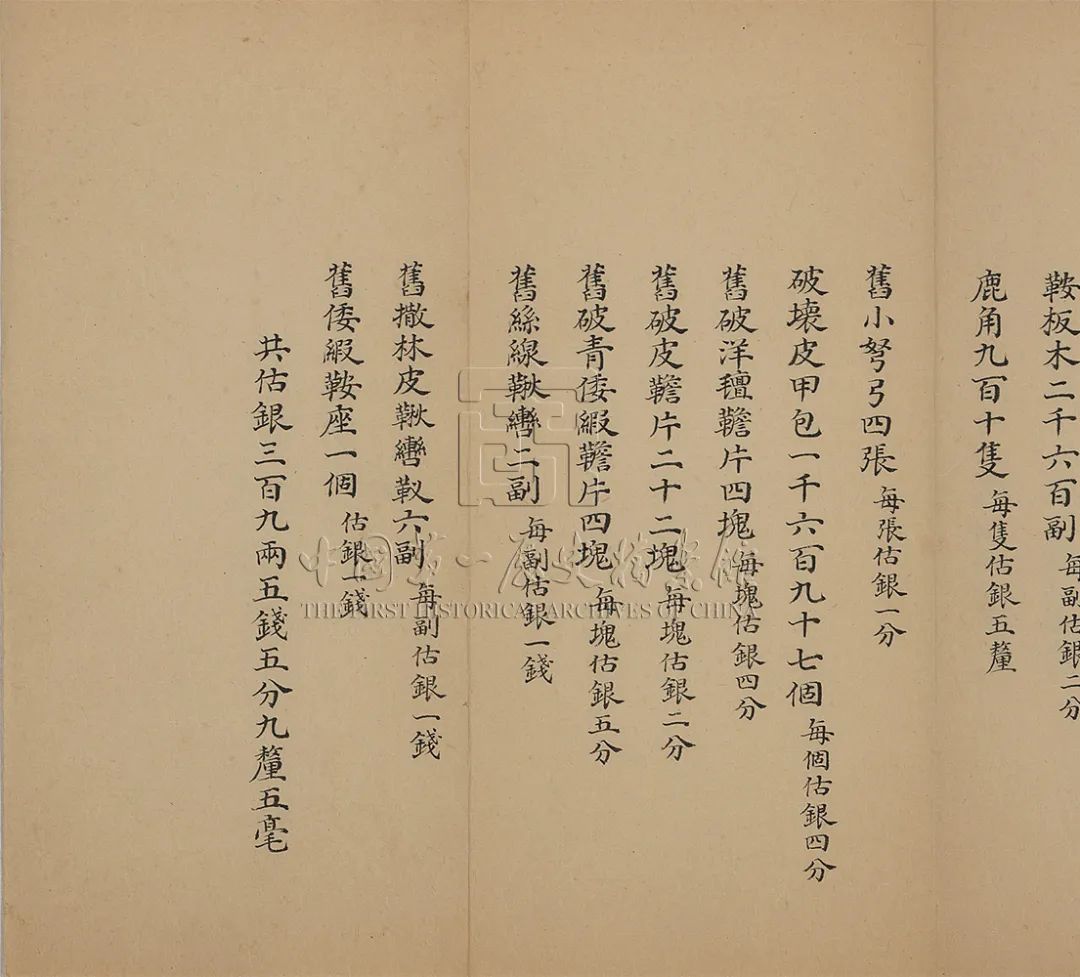 鞍板木二千六百副每副估銀二分
鹿角九百十隻每隻估銀五釐
舊小弩弓四張每張估銀一分
破壞皮甲包一千六百九十七個每個估銀四分
舊破洋氊韂片四塊每塊估銀四分
舊破皮韂片二十二塊每塊估銀二分
舊破青倭緞韂片四塊每塊估銀五分
舊絲線鞦轡二副每副估銀一錢
舊撒林皮鞦轡靫六副每副估銀一錢
舊倭緞鞍座一個估銀一錢
共估銀三百九兩五錢五分九釐五毫
中國第一歷史檔案館
THE FIRST HISTORICAL ARCHIVES OF CHINA